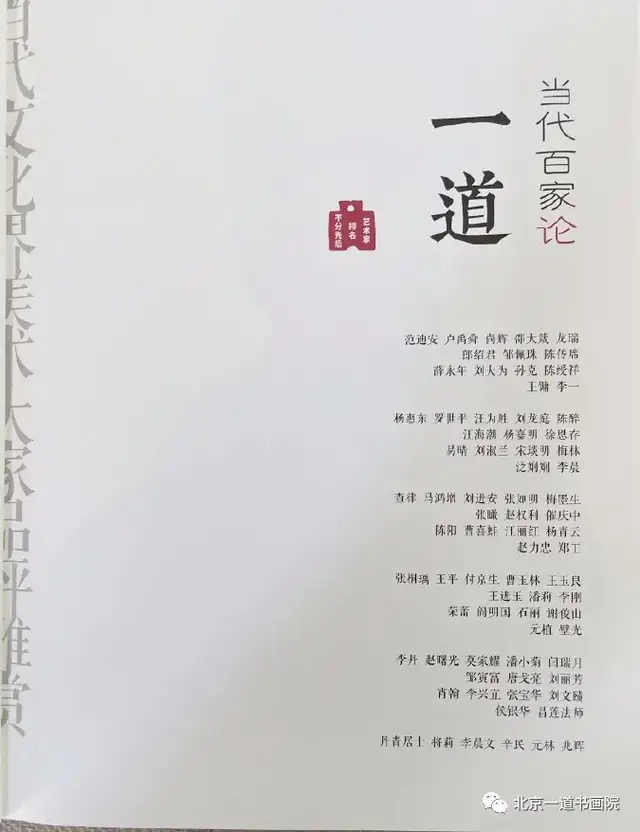 当代文化界美术大家品评推赏
当代百家论
一道
艺术家
排名
不分先后
范迪安 卢禹舜 尚辉 邵大箴 龙瑞
郎绍君 邹佩珠 陈传席
薛永年 刘大为 孙克 陈绶祥
王镛 李一
杨惠东 罗世平 汪为胜 刘龙庭 陈醉
汪海潮 杨嘉明 徐恩存
易晴 刘淑兰 宋琰明 梅林
泛娴娴 李晨
查律 马鸿增 刘进安 张如明 梅墨生
张瞰 赵权利 催庆中
陈阳 曹喜蛙 江丽红 杨青云
赵力忠 郑工
张桐瑀 王平 付京生 曹玉林 王玉良
王进玉 潘莉 李刚
荣蕾 阎明国 石丽 谢俊山
元植 壁光
李丹 赵曙光 莫家耀 潘小菊 闫瑞月
邹寅富 唐戈亮 刘丽芳
肖翰 李兴正 张宝华 刘文
侯银华 昌莲法师
丹青居士 将莉 李晨文 辛民 元林 兆晖
北京一道书画院